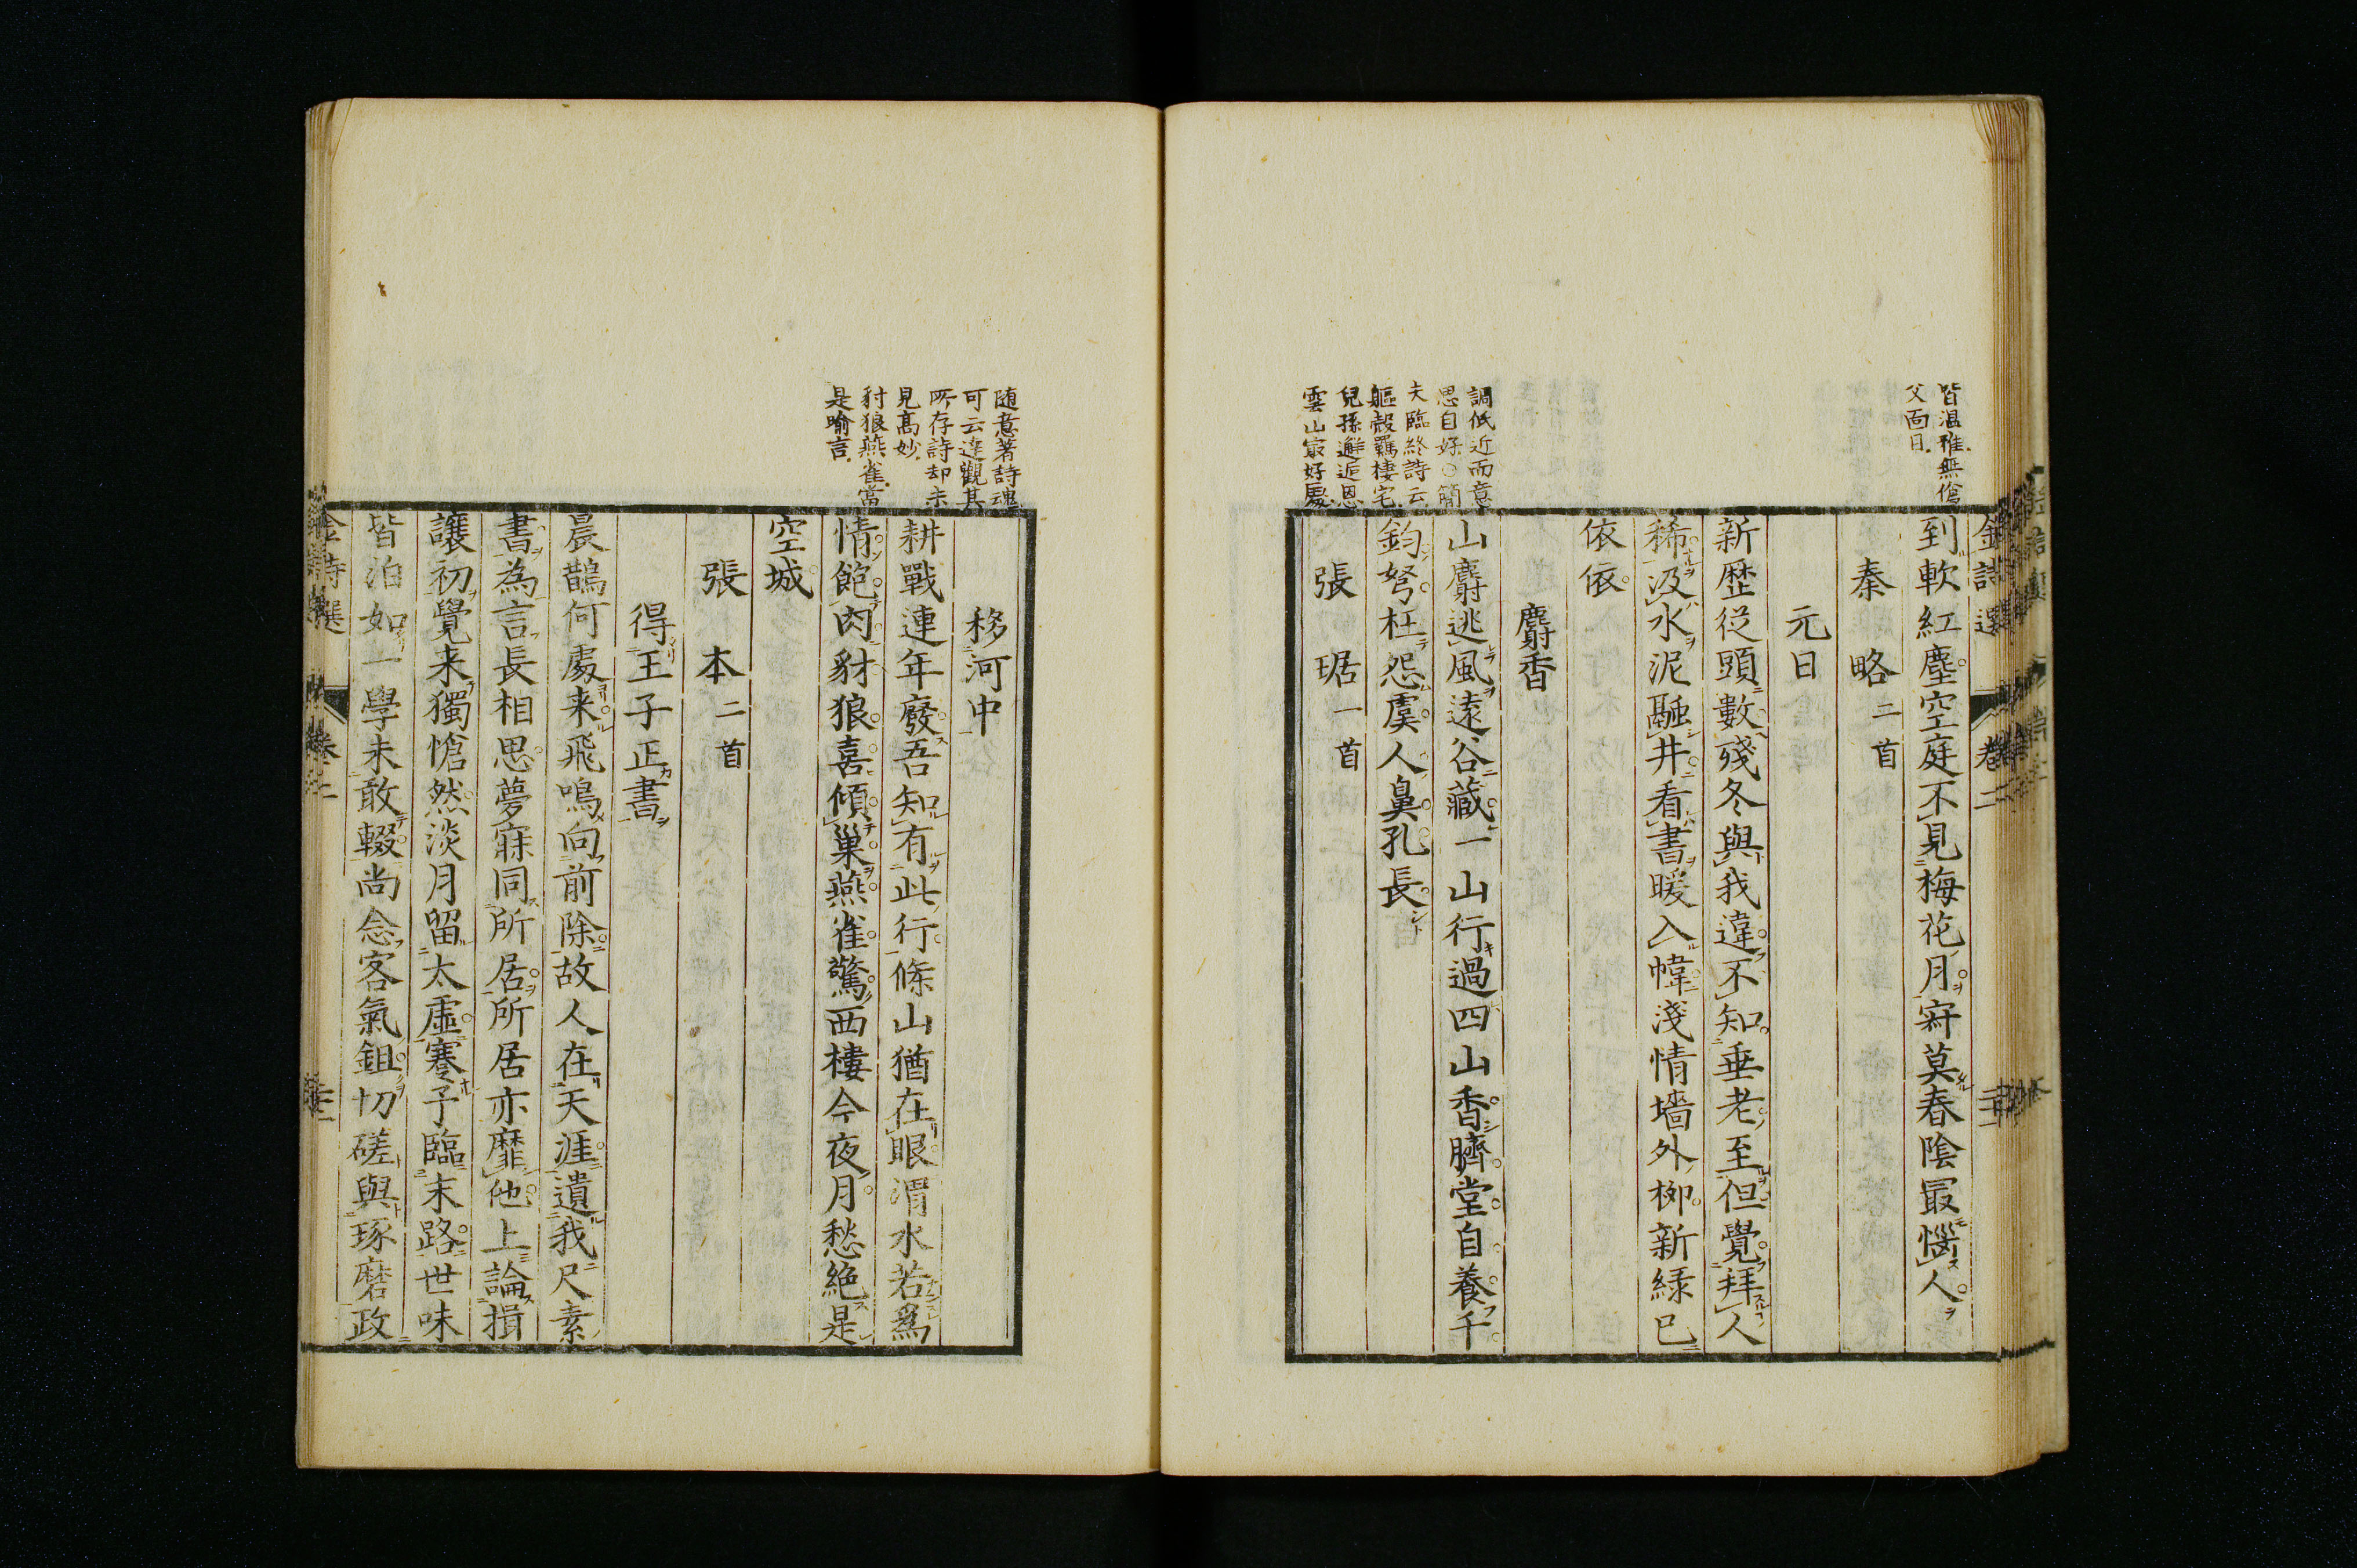 皆温雅無傖
父面目
調低近而意
思自好○簡
夫臨終詩云
軀殼羈棲宅
兒孫邂逅恩
雲山最好處
金詩選 卷二
到軟紅塵空庭不見梅花月寂莫春陰最惱人
秦略二首
元日
新歷從頭數殘冬與我違不知垂老至但覺拜人
稀汲水泥融井看書暖入幃淺情墻外柳新綠已
依依
麝香
山麝逃風遠谷藏一山行過四山香臍堂自養千
鈞弩枉怨虞人鼻孔長
張琚一首
随意著詩魂
可云達觀其
所存詩却未
見高妙
豺狼燕雀當
是喻言
移河中
耕戰連年廢吾知有此行條山猶在眼渭水若爲
情飽肉豺狼喜傾巢燕雀驚西樓今夜月愁絶是
空城
張本二首
得王子正書
晨鵲何處来飛鳴向前除故人在天涯遺我尺素
書為言長相思夢寐同所居所居亦靡他上論揖
讓初覺来獨愴然淡月留太虛蹇予臨末路世味
皆泊如一學未敢輟尚念客氣鉏切磋與琢磨政
金詩選 卷二